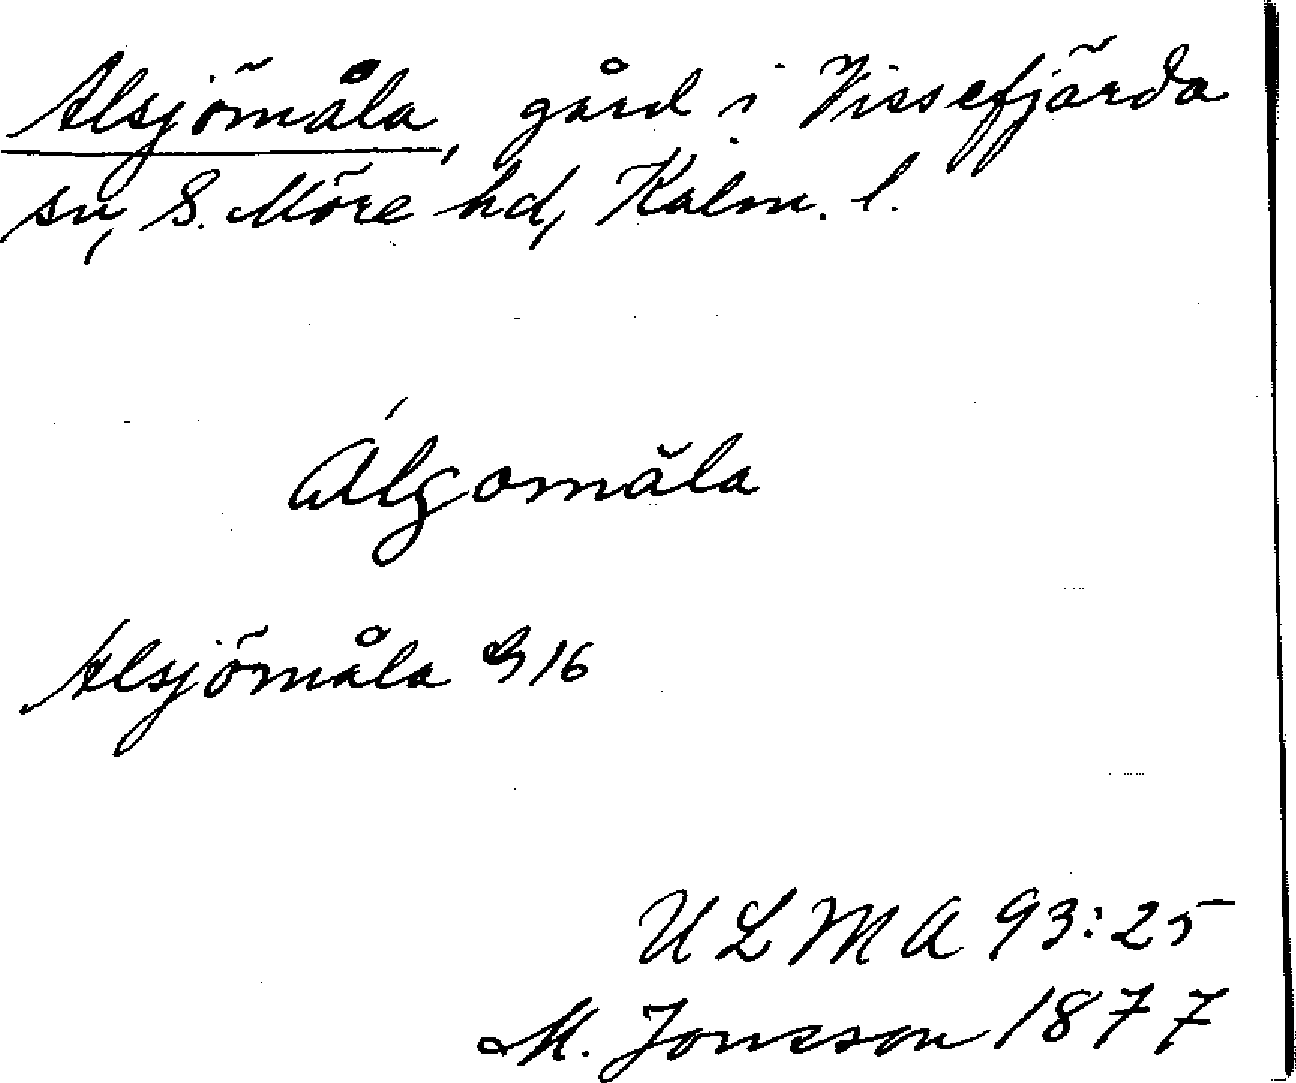 Alsjömåla, gård i Vissefjärda
sn, S. Möre hd, Kalm. l.
Álgomåla
Alsjömåla S 16
ULMA 93:25
M. Jonsson 1877